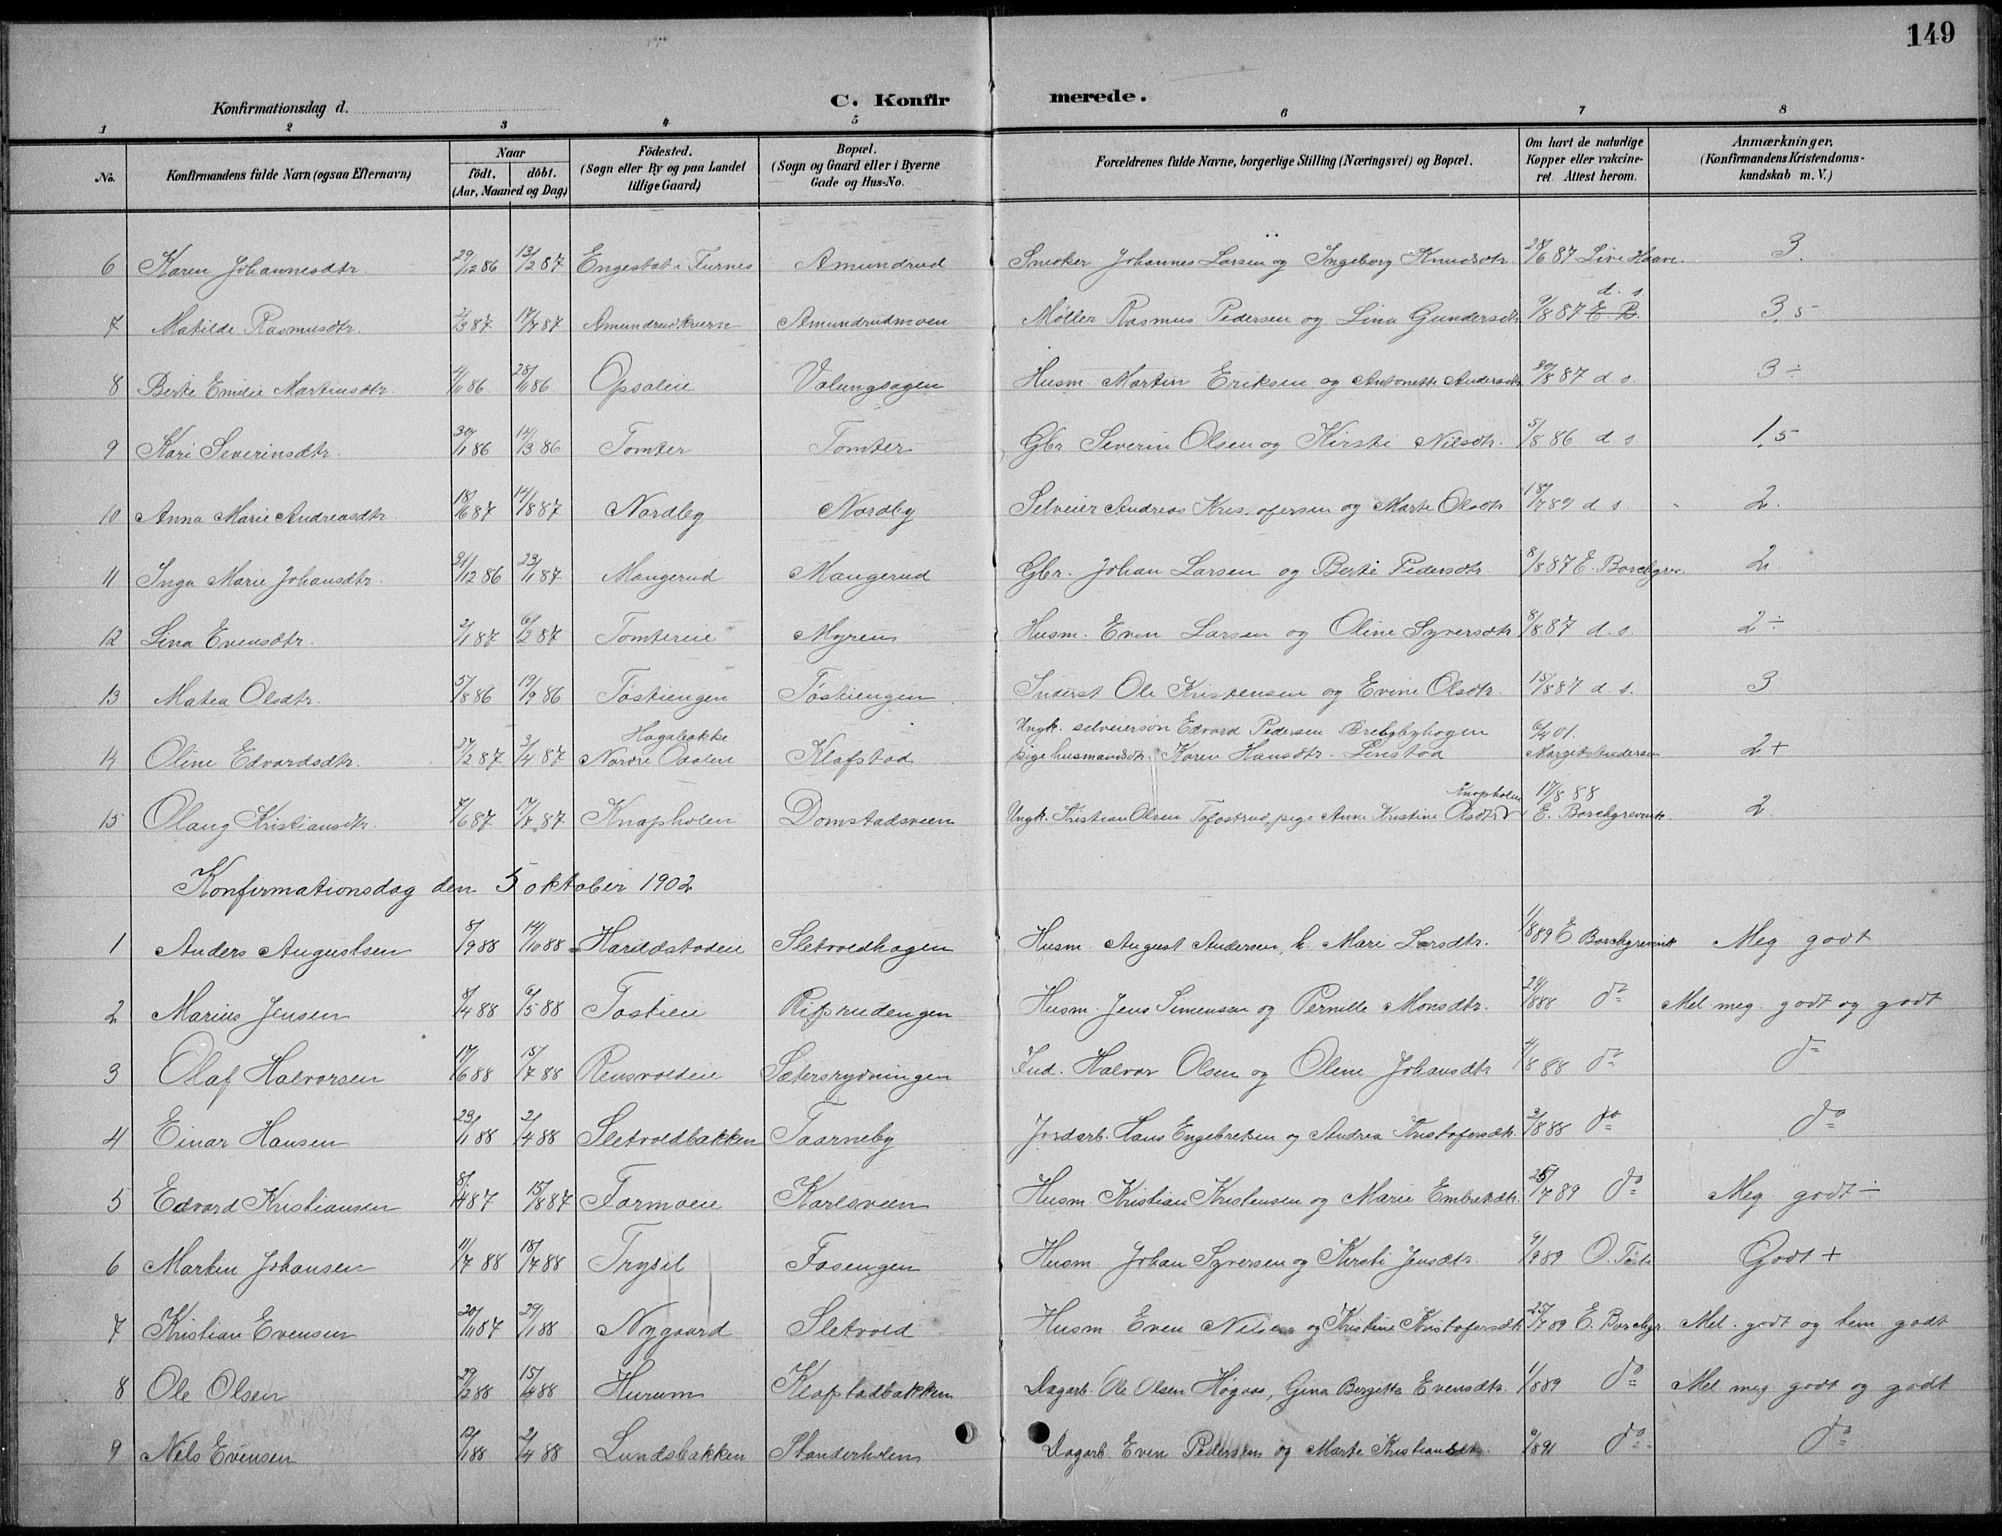 149
Konfirmationsdag d.
C. Konfirmerede.
1 2 3 4 5 6 7 8
No. Konfirmandens fulde Navn (ogsaa Efternavn) Naar födt. döbt. (Aar, Maaned og Dag) Födested. (Sogn eller By og paa Landet tillige Gaard) Bopæl. (Sogn og Gaard eller i Byerne Gade og Hus-No. Forældrenes fulde Navne, borgerlige Stilling (Næringsvei) og Bopæl. Om havt de naturlige Kopper eller vakcineret. Attest herom. Anmærkninger. (Konfirmandens Kristendomskundskab m. V.)
6 Karen Johannesdtr. 29/12 86 13/2 87 Engestat i Furnes Amundrud Snedker Johannes Larsen og Ingeborg Knudsdtr. 28/6 87 Live Haave. 3.
7 Matilde Rasmusdtr. 2/3 87 17/4 87 Amundrudkvern Amundrudmoen Møller Rasmus Pedersen og Lina Gundersdtr. 9/8 87 E B. d. s. 3,5
8 Berte Emilie Martinsdtr. 4/11 86 28/11 86 Opsaleie Volungsagen Husm. Martin Eriksen og Antonette Andersdtr. 30/8 87 d. s. 3÷
9 Kari Severinsdtr. 30/1 86 14/3 86 Tomter Tomter Gbr. Severin Olsen og Kirsti Nilsdtr. 5/8 86 d. s. 1,5
10 Anna Marie Andreasdtr. 18/6 87 14/8 87 Nordby Nordby Selveier Andreas Kristofersen og Marte Olsdtr. 18/7 89 d s. 2.
11 Inga Marie Johansdtr. 31/12 86 23/1 87 Mangerud Mangerud Gbr. Johan Larsen og Berte Pedersdtr. 8/8 87 E. Borchgrev. 2.
12 Lina Evensdtr. 2/1 87 6/2 87 Tomtereie Myren Husm. Even Larsen og Oline Syversdtr. 8/8 87 d. s. 2÷
13 Matea Olsdtr. 5/8 86 19/9 86 Töstiengen Töstiengen Inderst Ole Kristensen og Evine Olsdtr. 15/8 87 d s. 3
14 Oline Edvardsdtr. 27/2 87 3/4 87 Hagabakke Nordre Oaalen Klafstad Ungk. selveiersøn Edvard Pedersen Brebybyhagen pige husmandsdtr. Karen Hansdtr. Linstad 6/4 01. Marget Andersen 2+
15 Olaug Kristiansdtr. 7/6 87. 17/7 87 Knapholen Domstadsveen Ungk. Kristian Olsen Tofastrud, pige Anne Kristine Olsdtr Knapholen 17/8 88 E. Borchgrevink. 2
Konfirmationsdag den 5 oktober 1902
1 Anders Augustsen 8/9 88 14/10 88 Harildstadeie Sletvoldhagen Husm. August Andersen, h. Mari Larsdtr. 1/8 89 E Borchgrevink Meg godt
2 Marius Jensen 8/4 88 6/5 88 Tostieie Rifsrudengen Husm. Jens Simensen og Pernille Monsdtr. 24/8 88 do Mel meg. godt og godt
3 Olaf Halvorsen 17/6 88 15/7 88 Rensvoldeie Sætersrydningen Ind. Halvor Olsen og Oline Johansdtr. 4/8 88 do do
4 Einar Hansen 23/1 88 2/4 88 Sletvoldbakken Taarneby Jordarb. Hans Engebretsen og Andrea Kristofersdtr. 3/8 88 do do
5 Edvard Kristiansen 8/4 87 15/8 87 Formoeie Karlsveen Husm. Kristian Kristensen og Marie Embretsdtr. 25/7 89 do Meg. godt÷
6 Martin Johansen 11/7 88 18/7 88 Trysil Fosengen Husm. Johan Syversen og Kersti Jensdtr. 9/9 89 O. Töste Godt +
7 Kristian Evensen 20/11 87 29/1 88 Nygaard Sletvold Husm. Even Nilsen og Kristine Kristofersdtr. 25/7 89 E. Borchgr. Mel. godt og tem. godt
8 Ole Olsen 29/2 88 15/4 88 Hurum Klafstadbakken Dagarb. Ole Olsen Høgaas, Gina Bergitte Evensdtr. 1/8 89 do Mel meg. godt og godt
9 Nils Evensen 12/1 88 2/4 88 Lundsbakken Standerholen Dagarb. Even Pedersen og Marte Kristiansdtr. 9/8 91 do do